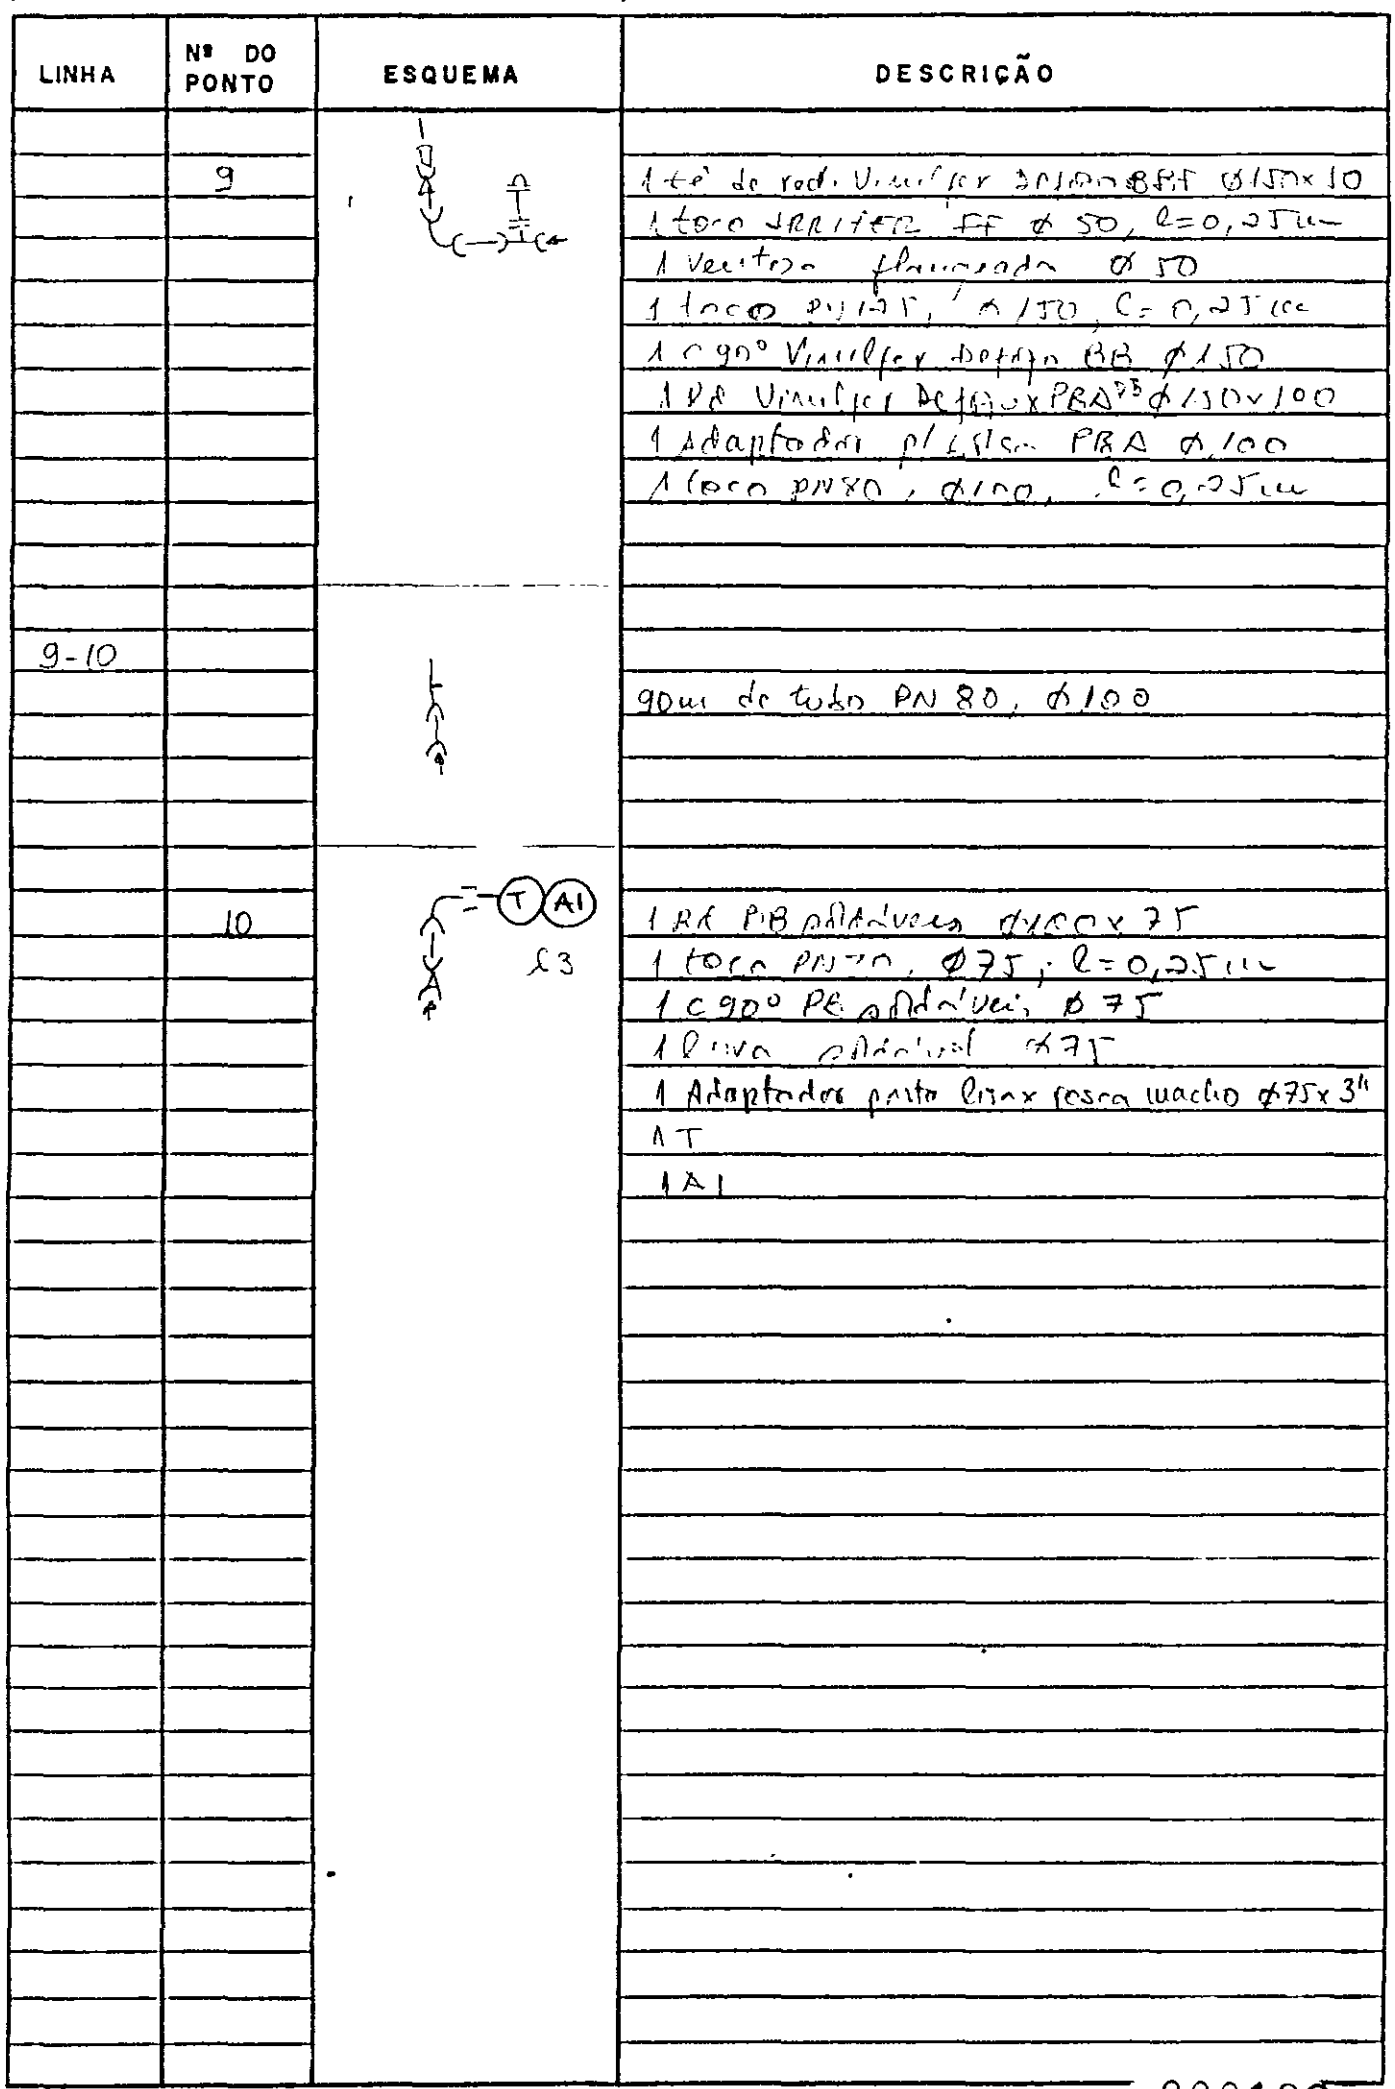 LINHA Nº DO PONTO ESQUEMA DESCRIÇÃO
9 1 tê de red. Vinilfer BFF Ø150x50
1 toco IRRIFER FF Ø 50, l=0,25m
1 ventosa flangeada Ø 50
1 toco PN125, Ø150, l=0,25m
1 C 90° Vinilfer Defofo BB Ø150
1 Vinilfer PBA Ø150x100
1 Adaptador p/ PBA Ø100
1 toco PN80, Ø100, l=0,25m
9-10
90m de tubo PN 80, Ø100
T AI
10 1 PB soldáveis Ø100x75
l3 1 toco Ø75, l=0,25m
1 C 90° PB soldável, Ø 75
1 luva soldável Ø75
1 Adaptador ponta lisa x rosca macho Ø75x3"
1 T
1 AI